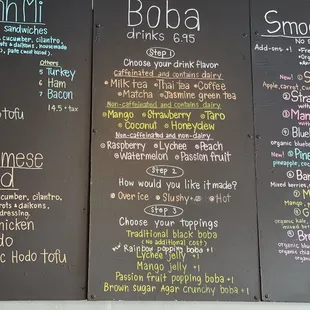 nh Mi
sandwiches
cucumber, cilantro,
Others
5 Turkey
6 Ham
7 Bacon
14.5 + tax
tofu
mese
d
cucumber, cilantro,
dressing.
hicken
do
c Hodo tofu
Boba
drinks 6.95
Step ①
Choose your drink flavor
caffeinated and contains dairy
Milk tea Thai Tea Coffee
Matcha Jasmine green tea
Non-caffeinated and contains dairy
Mango Strawberry Taro
Coconut Honeydew
Non-caffeinated and non-dairy
Raspberry Lychee Peach
Watermelon Passion fruit
Step ②
How would you like it made?
Over ice Slushy Hot
Step ③
Choose your toppings
Traditional black boba
(no additional cost)
Rainbow popping boba +1
Lychee jelly +1
Mango jelly +1
Passion fruit popping boba +1
Brown sugar Agar crunchy boba +1
Smo
Add-ons +1
New!
Apple, carrot
Stra
Ma
Blu
organic blue
New! Pine
Ban
Mixed berries,
M
Mango,
G
organic
Br
organic blu